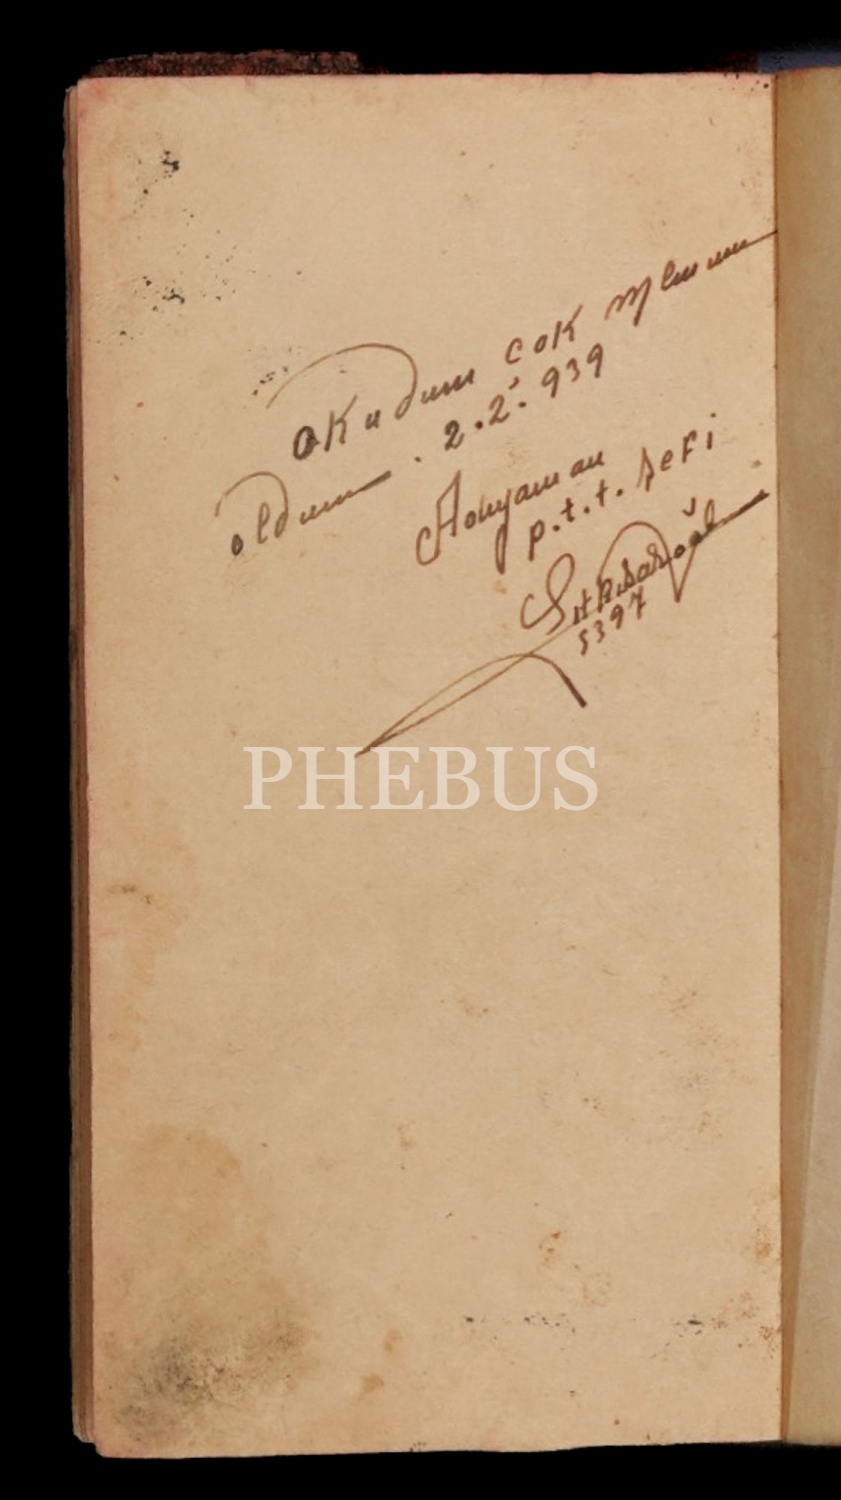 okudum çok memnun
oldum. 2.2.939
Adıyaman
p.t.t. şefi
Sıtkı
5397
PHEBUS